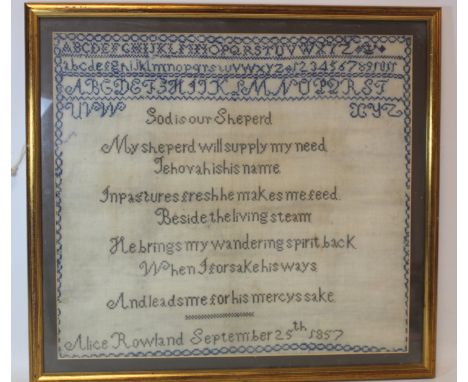 ABCDEFGHIJKLMNOPQRSTUVWXYZ&
abcdefghijklmnopqrstuvwxyz
ABCDEFGHIJKLMNOPQRST
UVW XYZ
God is our Sheperd
My sheperd will supply my need
Jehovah is his name
In pastures fresh he makes me feed
Beside the living steam
He brings my wandering spirit back
When I forsake his ways
And leads me for his mercys sake
Alice Rowland September 25th 1857